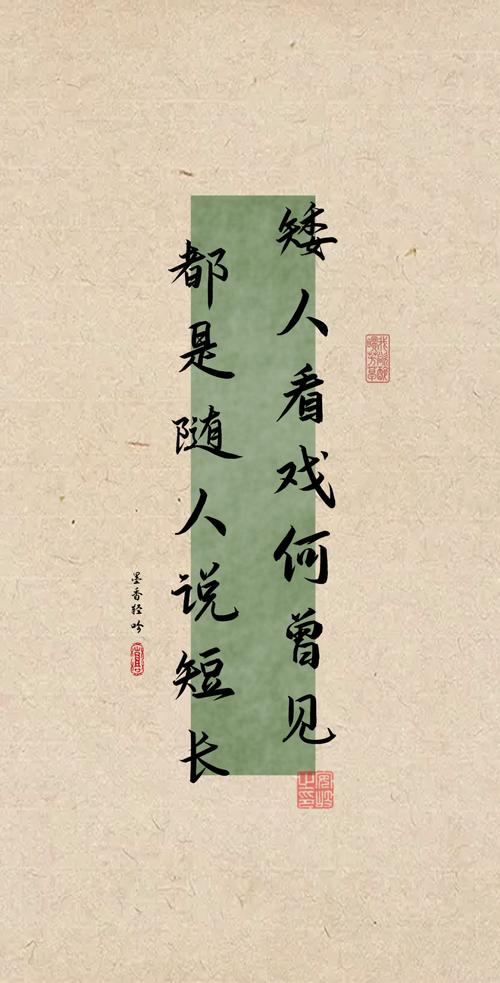 矮人看戏何曾见
都是随人说短长
墨香轻吟